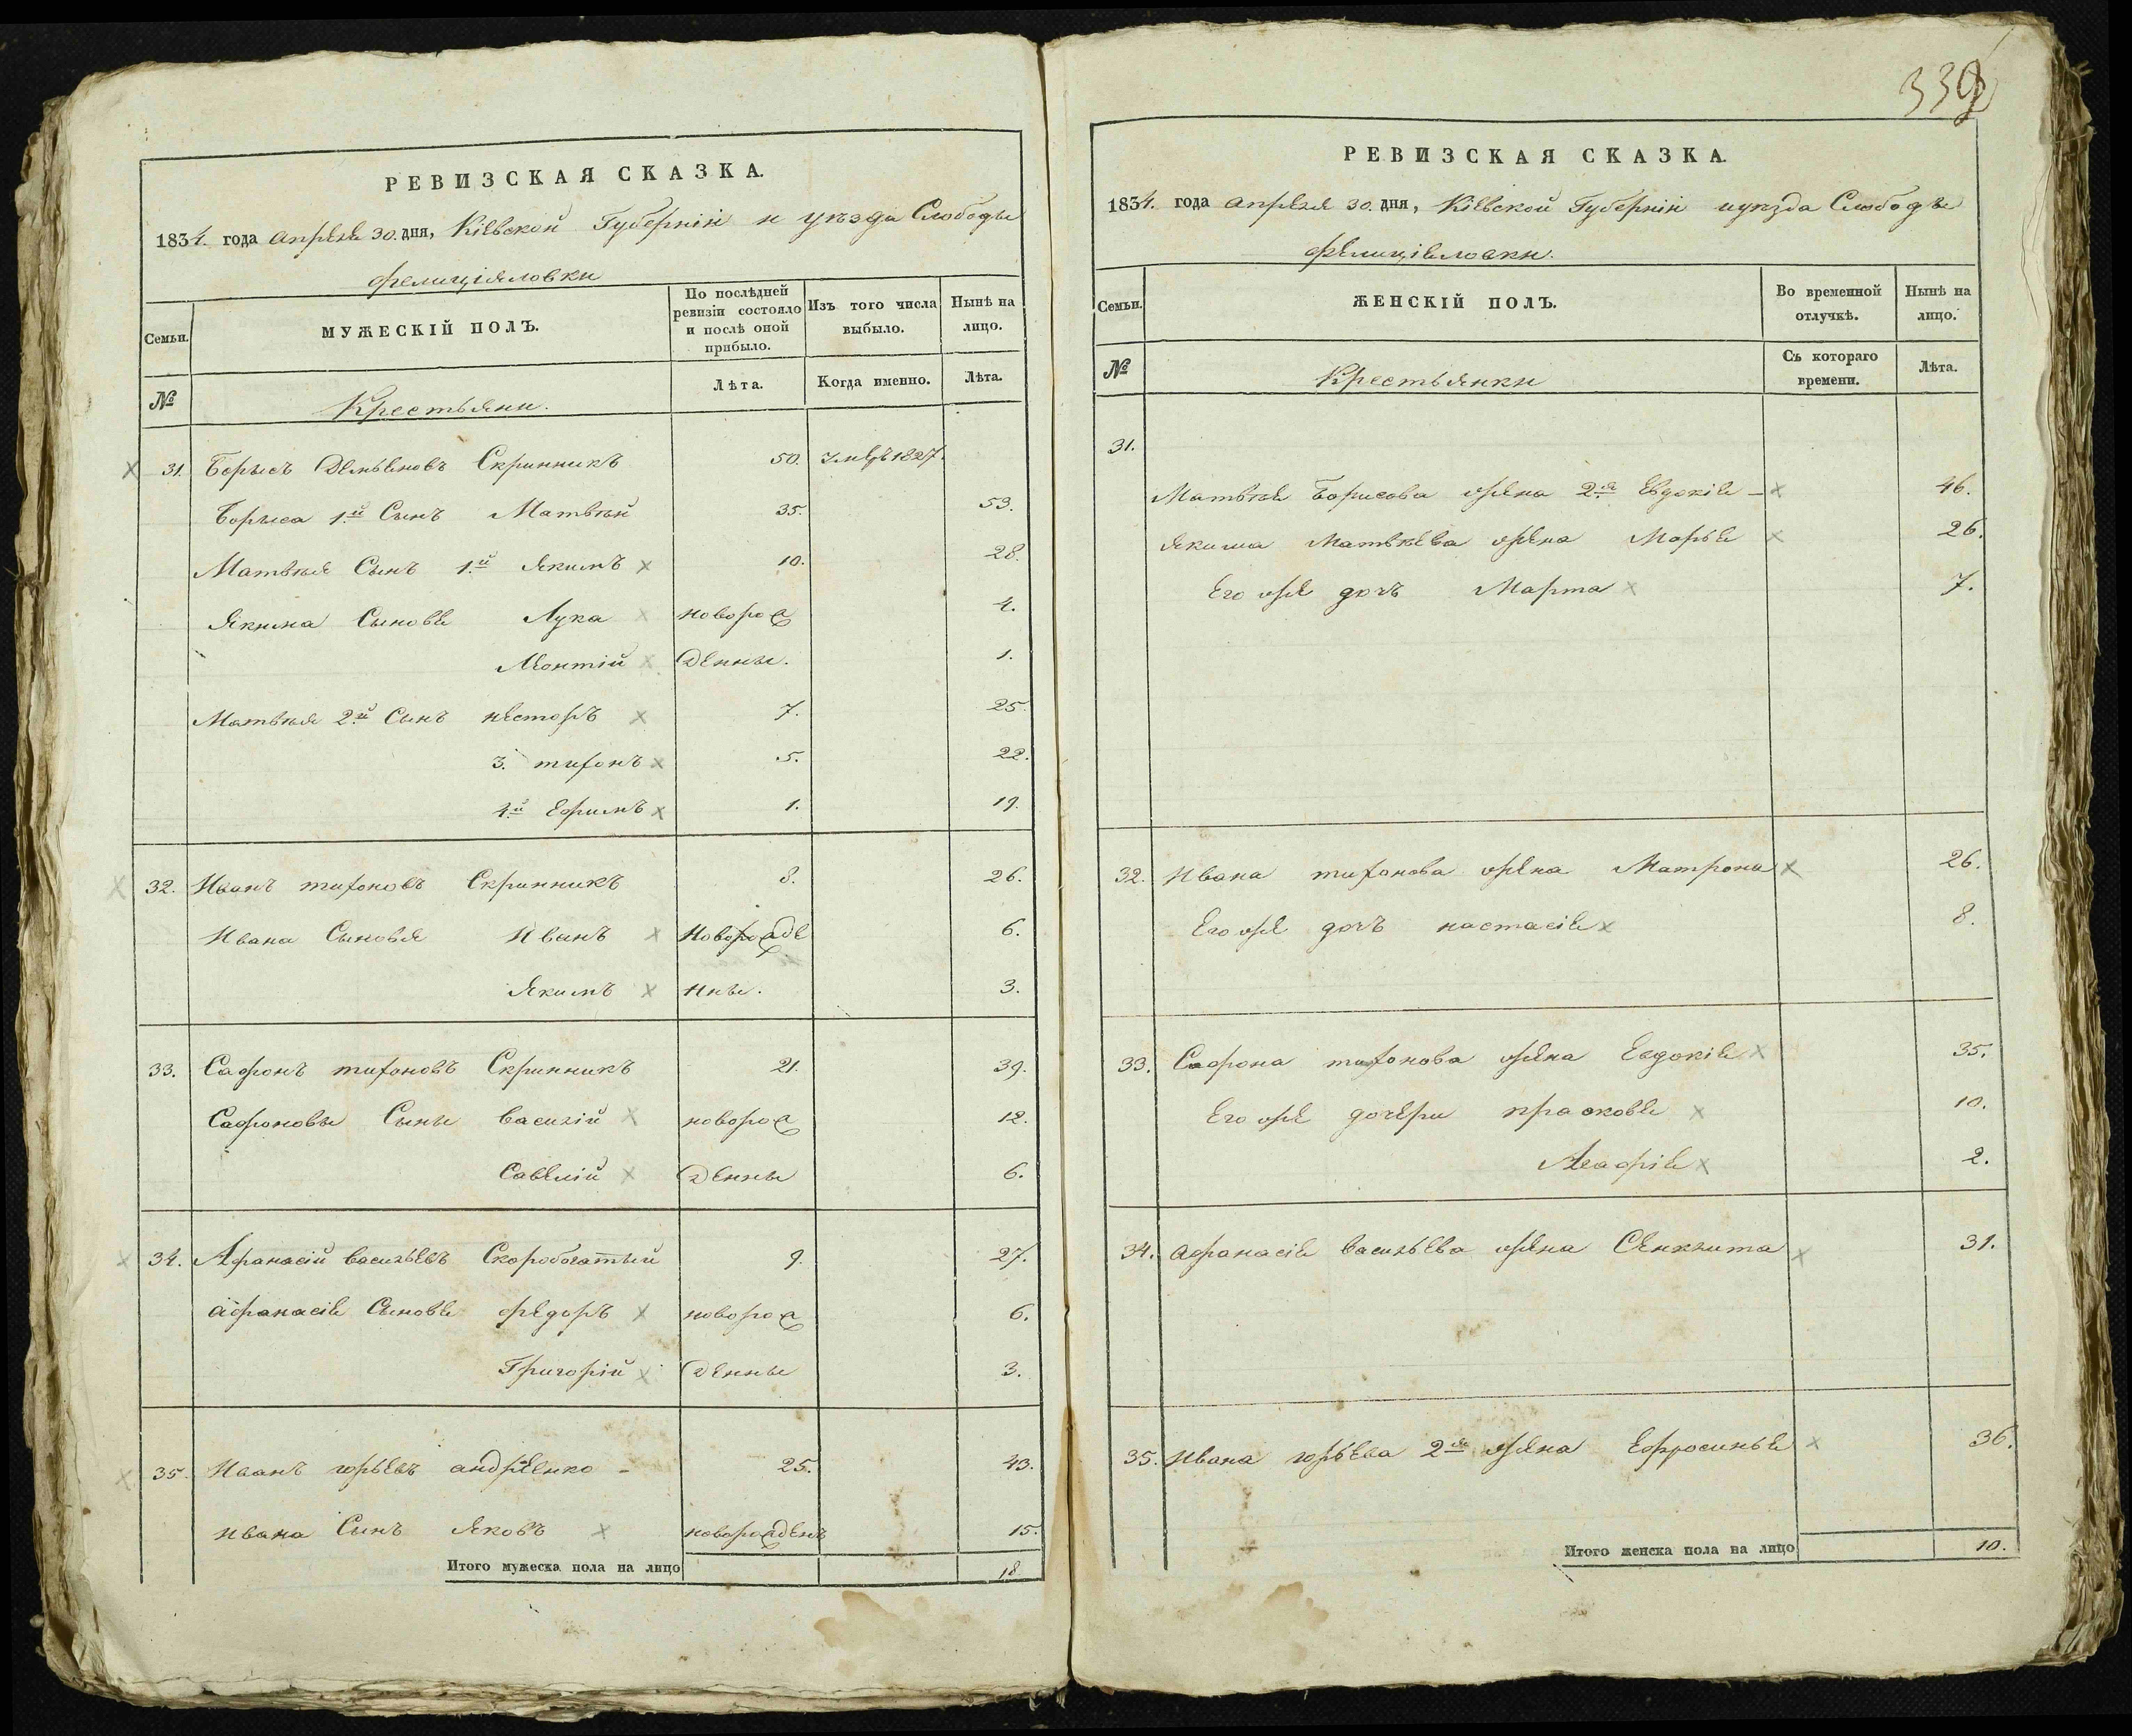 РЕВИЗСКАЯ СКАЗКА.
1834. года апреля 30. дня, Кіевской Губерніи и уѣзда Слободы
фелиціяловки
Семьи.
МУЖЕСКІЙ ПОЛЪ.
По послѣдней ревизіи состояло и послѣ оной прибыло.
Изъ того числа выбыло.
Нынѣ на лицо.
№
Крестьяни.
Лѣта.
Когда именно.
Лѣта.
31. Борысъ Демьяновъ Скринникъ 50. умеръ 1827.
Борыса 1й Сынъ Матвѣй 35. 53.
Матвѣя Сынъ 1й Якимъ 10. 28.
Якима Сыновья Лука новорож 4.
Леонтій денны. 1.
Матвѣя 2й Сынъ несторъ 7. 25.
3. тихонъ 5. 22.
4й Ефимъ 1. 19.
32. Иванъ тихоновъ Скринникъ 8. 26.
Ивана Сыновья Иванъ Новорожде 6.
Якимъ нны. 3.
33. Сафронъ тихоновъ Скринникъ 21. 39.
Сафроновы Сыны василій новорож 12.
Савелій денны 6.
34. Афанасій васильевъ Скоробогатый 9. 27.
афанасія Сыновья федоръ новорож 6.
Григорій денны 3.
35. Иванъ юрьевъ андрѣенко 25. 43.
ивана Сынъ Яковъ новорожденъ 15.
Итого мужеска пола на лицо 18
339
РЕВИЗСКАЯ СКАЗКА.
1834. года апреля 30. дня, Кіевской Губерніи и уѣзда Слободы
фелиціяловки.
Семьи.
ЖЕНСКІЙ ПОЛЪ.
Во временной отлучкѣ.
Нынѣ на лицо.
№
Крестьянки
Съ котораго времени.
Лѣта.
31.
Матвѣя Борисова жена 2я Евдокія 46.
Якима Матвѣева жена Марья 26.
Его же дочь Марта 7.
32. Ивана тихонова жена Матрона 26.
Его же дочь настасія 8.
33. Сафрона тихонова жена Евдокія 35.
Его же дочери прасковья 10.
Агафія 2.
34. афанасія васильева жена Сенклита 31.
35. Ивана юрьева 2я жена Ефросинья 36.
Итого женска пола на лицо 10.